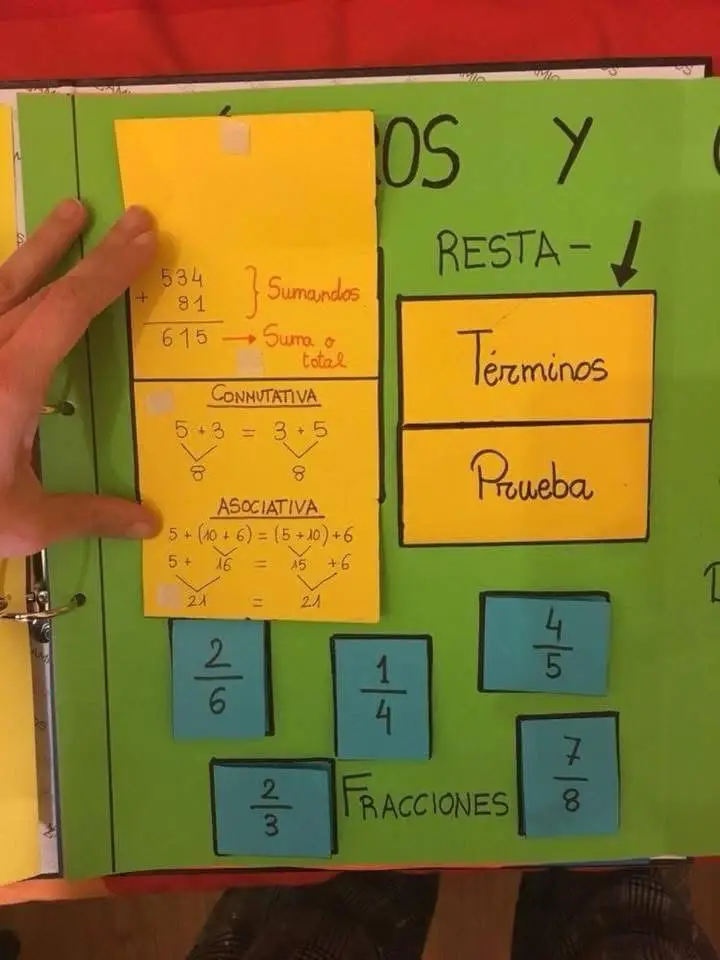 OS Y
RESTA -
534
+ 81
615
} Sumandos
→ Suma o
total
CONMUTATIVA
5 + 3 = 3 + 5
8 8
ASOCIATIVA
5 + (10 + 6) = (5 + 10) + 6
5 + 16 = 15 + 6
21 = 21
Términos
Prueba
2/6
1/4
4/5
2/3
FRACCIONES
7/8